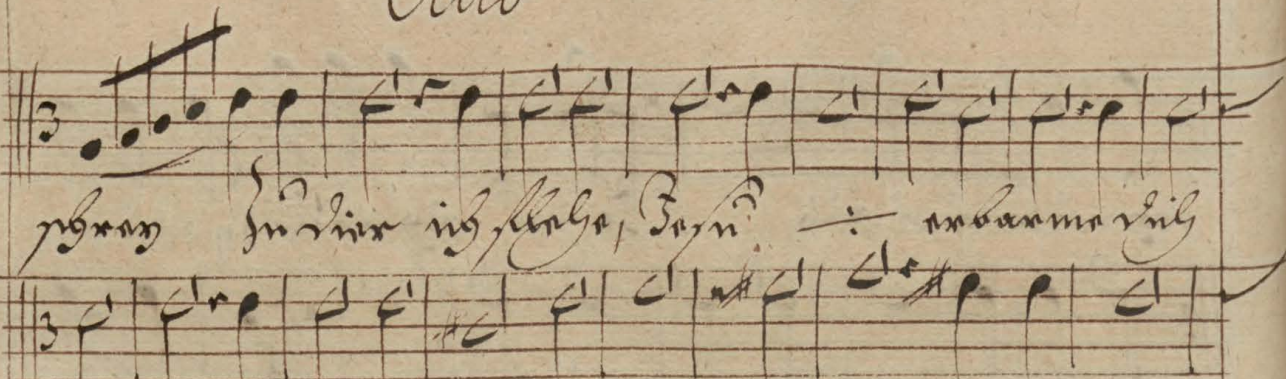 3
schrey Zu dier ich flehe, Jesu ÷ erbarme dich
3